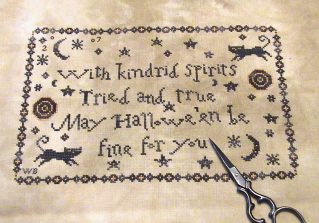 2007
with kindrid spirits
Tried and true
May Hallowe'en be
fine for you
WS